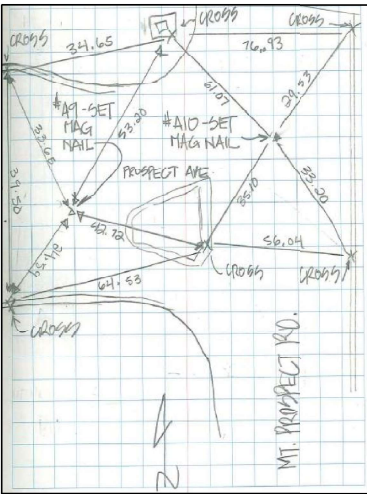 CROSS
CROSS
CROSS
34.65
76.93
61.07
29.53
#A9-SET
MAG
NAIL
53.20
#A10-SET
MAG NAIL
33.65
39.50
PROSPECT AVE
33.20
35.10
42.72
56.04
64.53
CROSS
CROSS
CROSS
MT. PROSPECT RD.
N